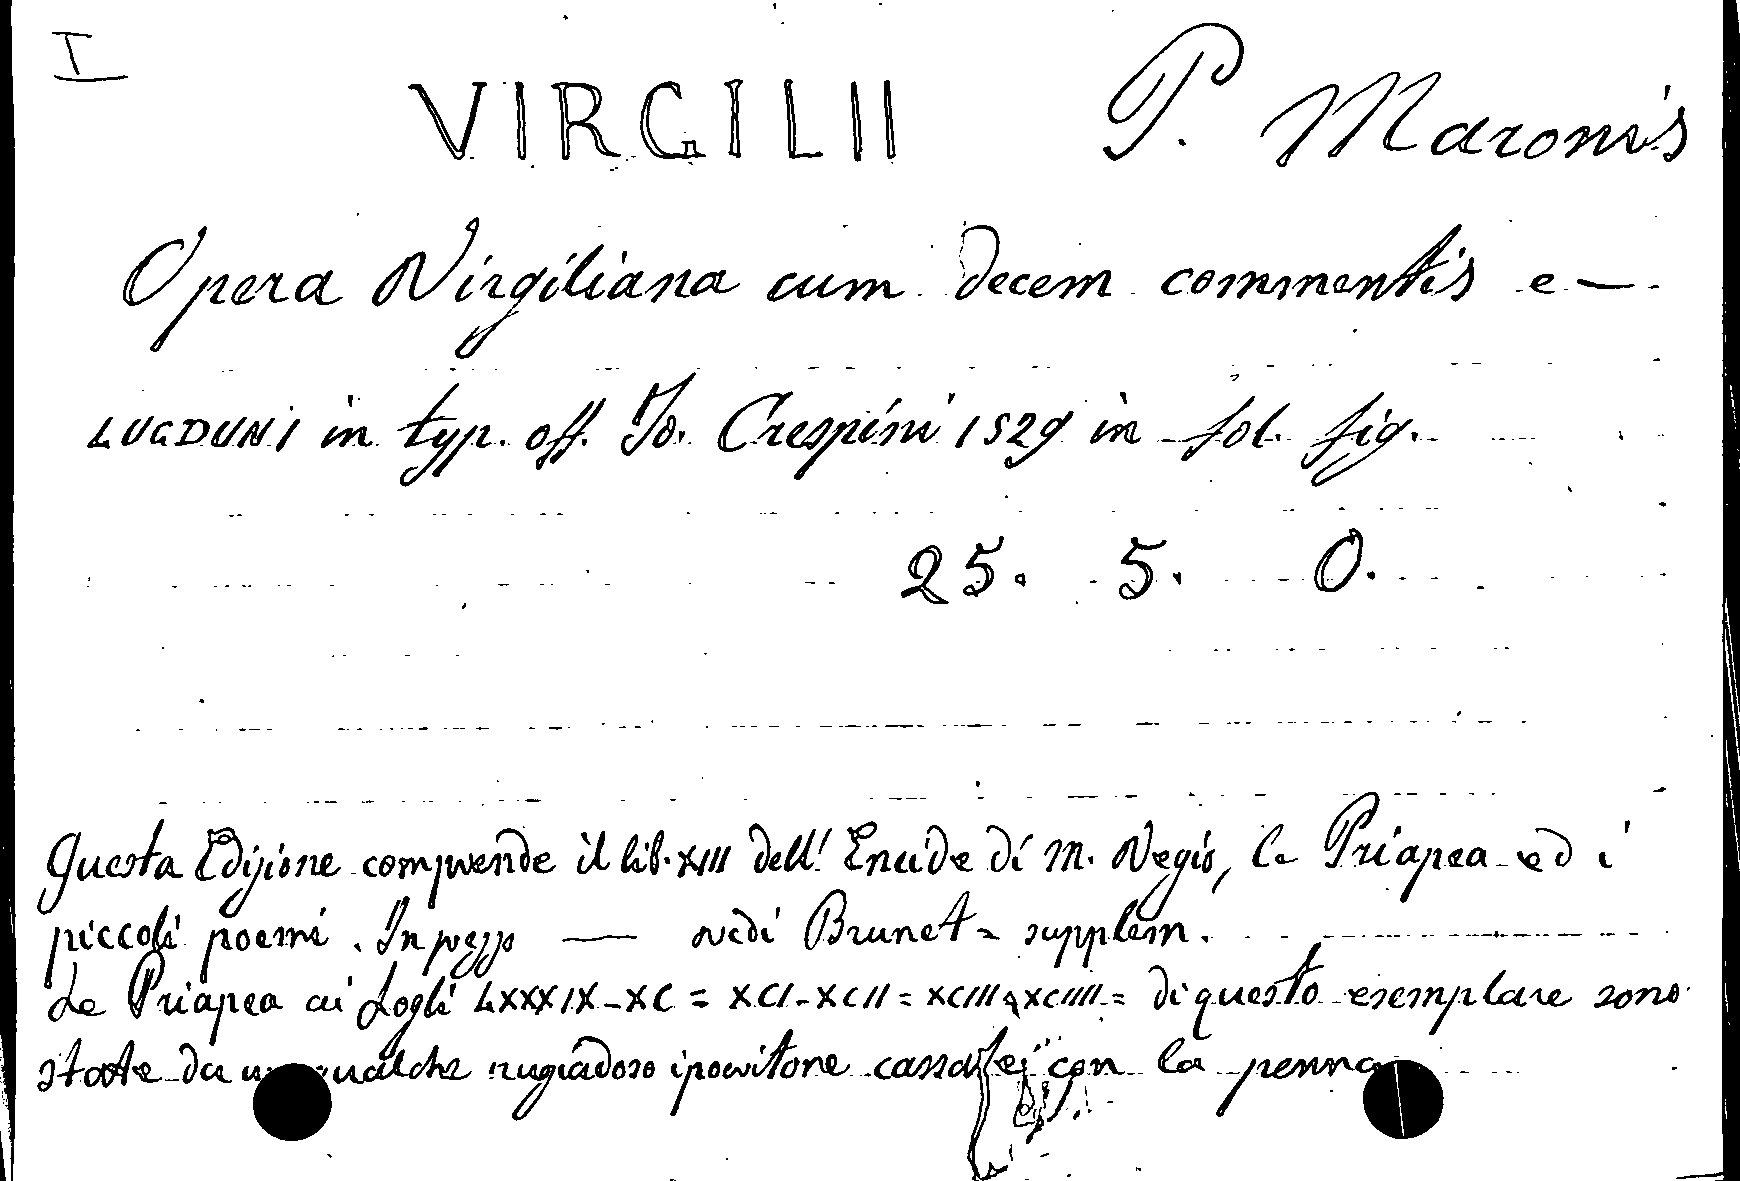 I
VIRGILII P. Maronis
Opera Virgiliana cum decem commentis e —
LUGDUNI in typ. off. Jo. Crespini 1529 in fol. fig.
25. 5. 0.
Questa Edizione comprende il lib. XIII dell' Eneide di M. Vegio, la Priapea ed i
piccoli poemi. In prezzo — vedi Brunet = supplem.
Le Priapea ai fogli LXXXIX - XC = XCI - XCII = XCIII e XCIIII = di questo esemplare sono
state da un qualche rugiadoso ipocritone cassate con la penna